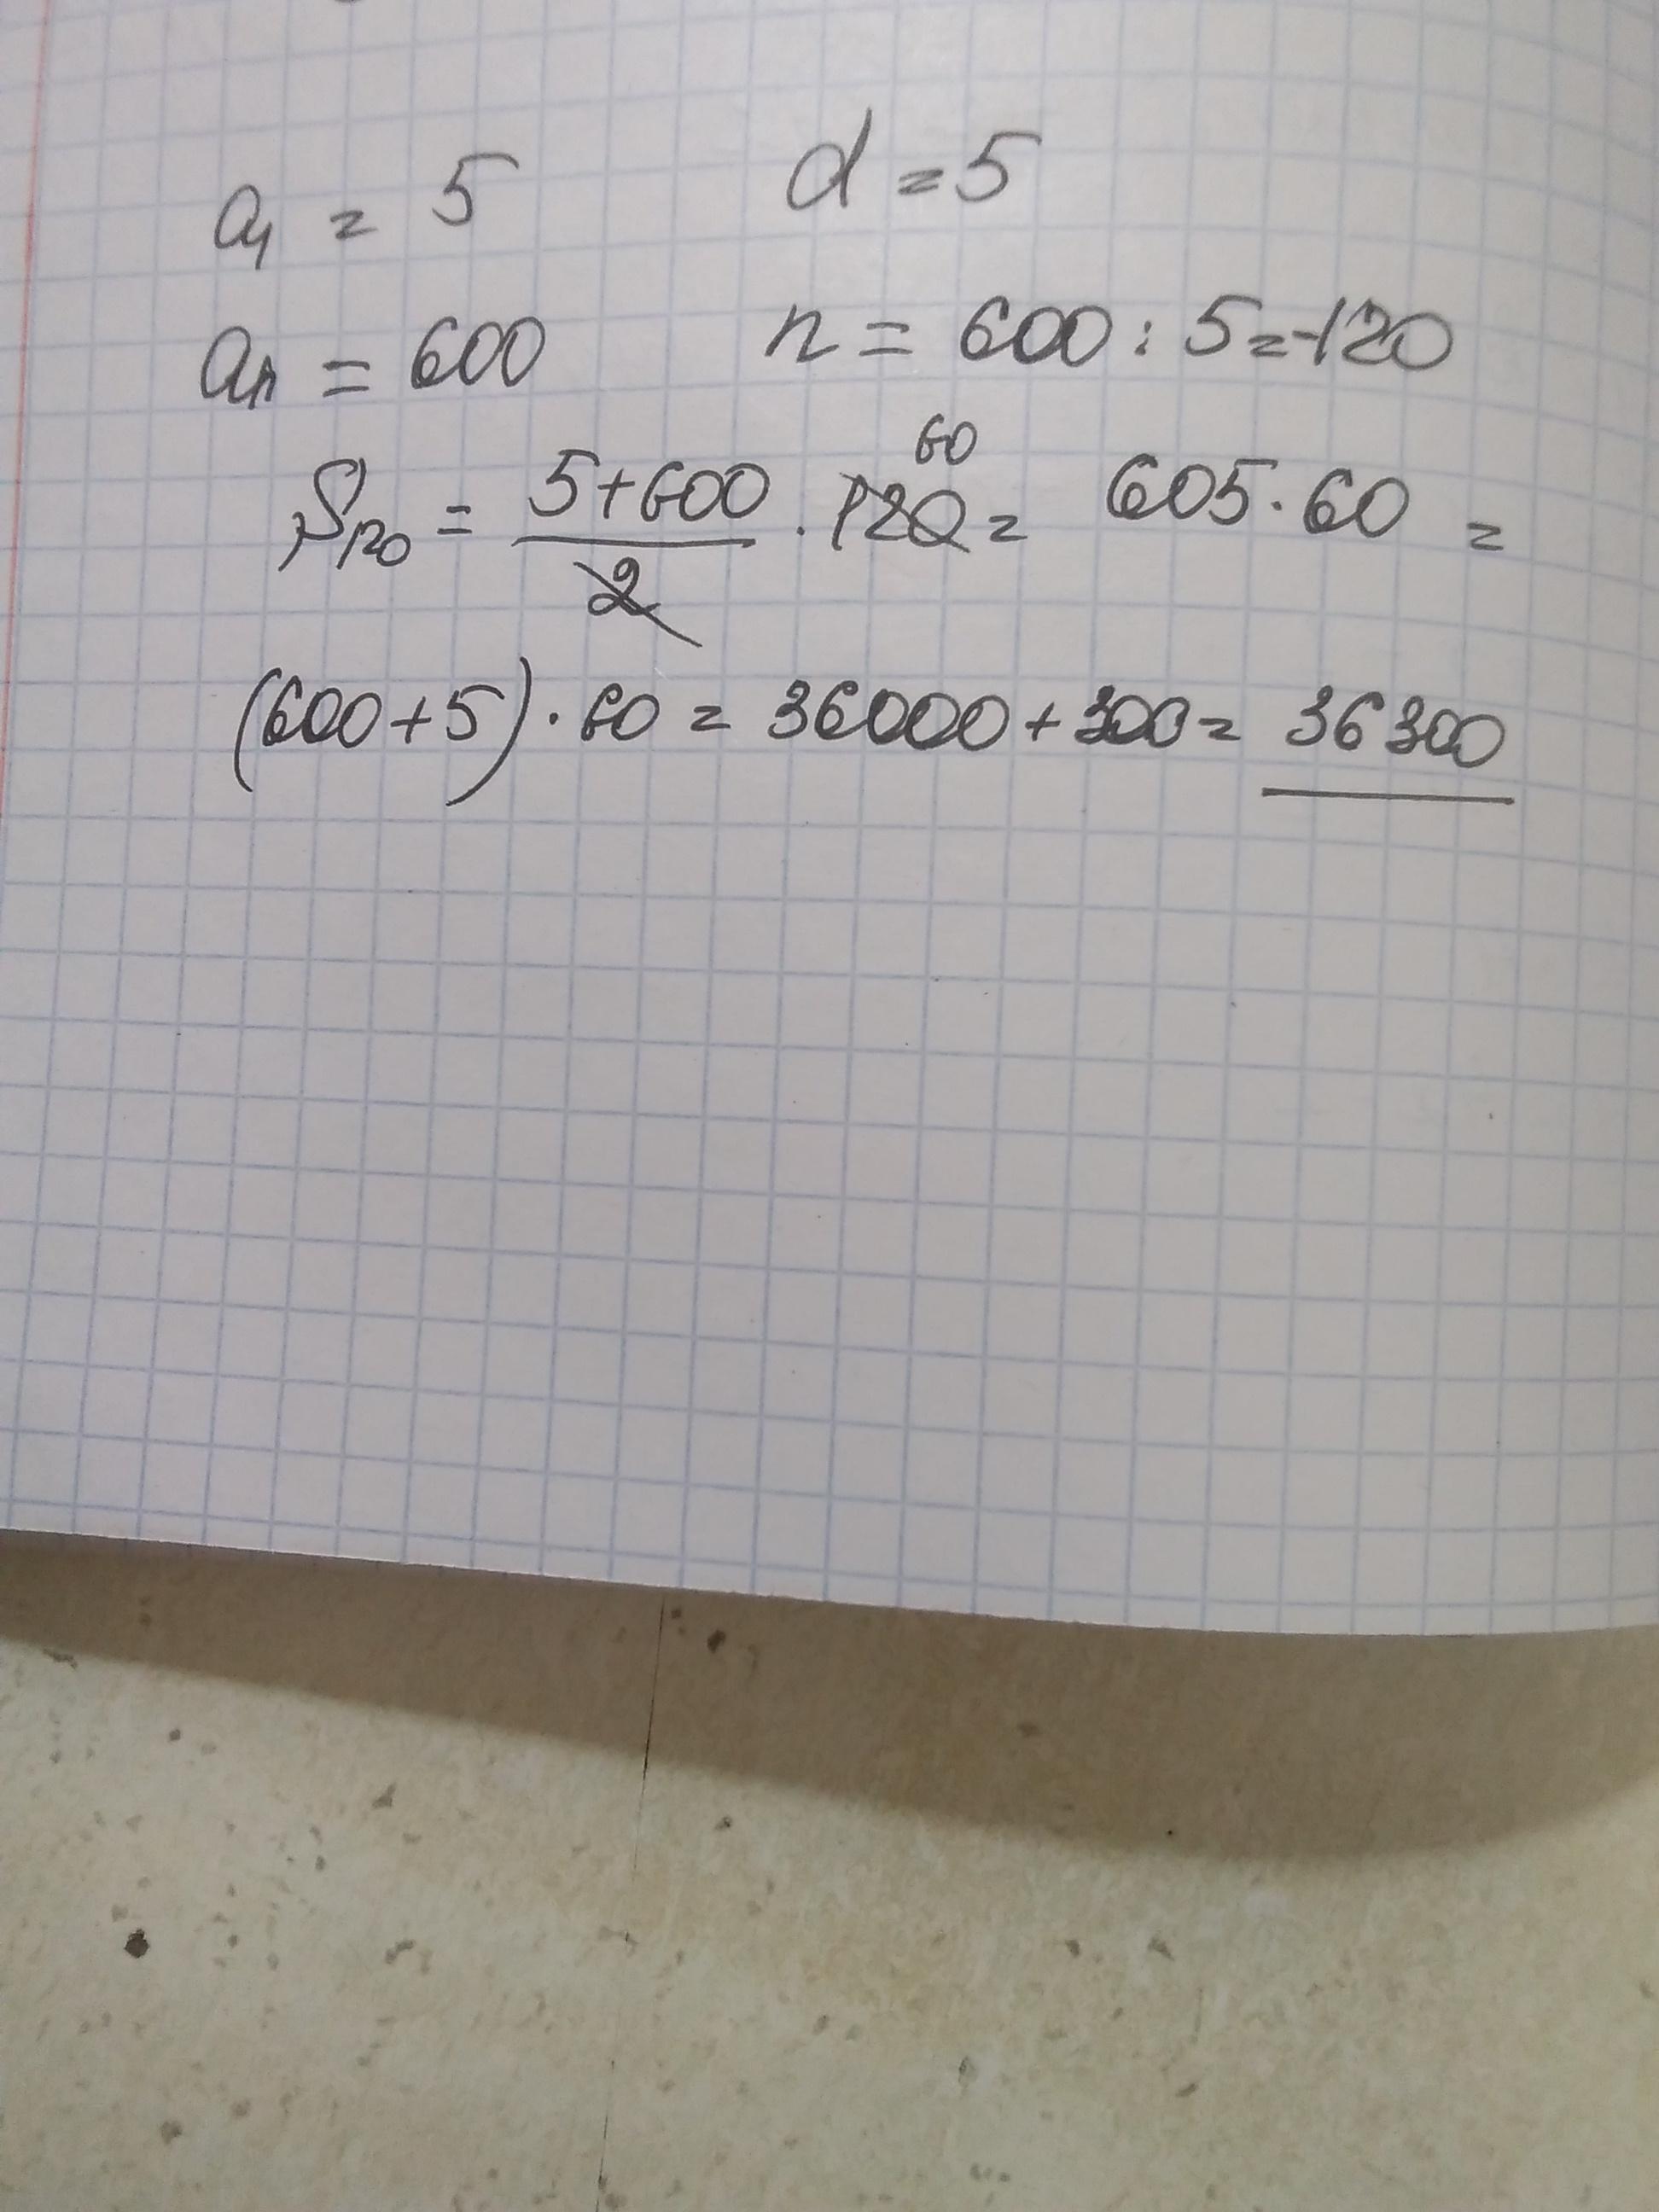 a₁ = 5 d = 5
aₙ = 600 n = 600 : 5 = 120
S₁₂₀ = (5+600)/2 · 120 60 = 605 · 60 =
(600+5) · 60 = 36000 + 300 = 36300